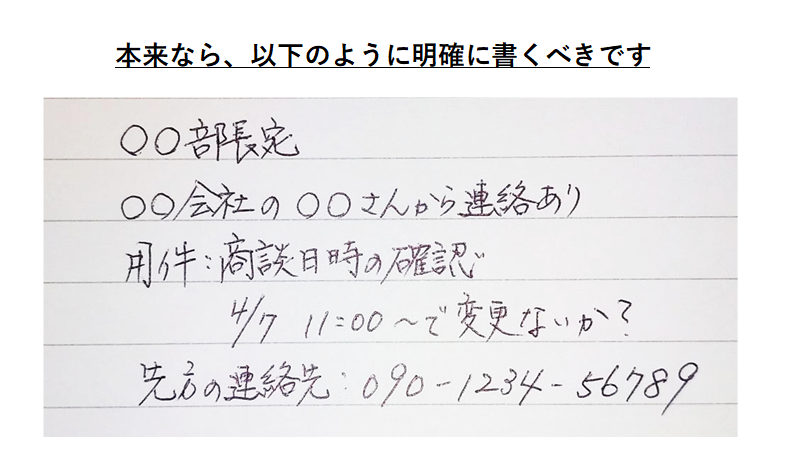 本来なら、以下のように明確に書くべきです
〇〇部長宛
〇〇会社の〇〇さんから連絡あり
用件：商談日時の確認
4/7 11:00～で変更ないか？
先方の連絡先：090-1234-56789